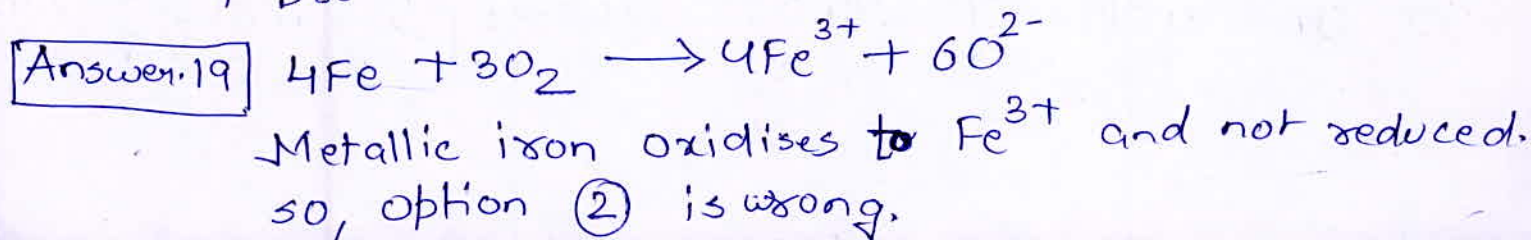 Answer.19 4Fe + 3O₂ → 4Fe³⁺ + 6O²⁻
Metallic iron oxidises to Fe³⁺ and not reduced.
so, option ② is wrong.